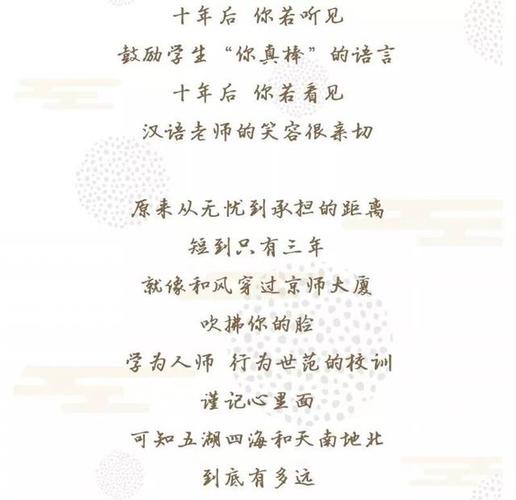 十年后 你若听见
鼓励学生“你真棒”的语言
十年后 你若看见
汉语老师的笑容很亲切
原来从无忧到承担的距离
短到只有三年
就像和风穿过京师大厦
吹拂你的脸
学为人师 行为世范的校训
谨记心里面
可知五湖四海和天南地北
到底有多远